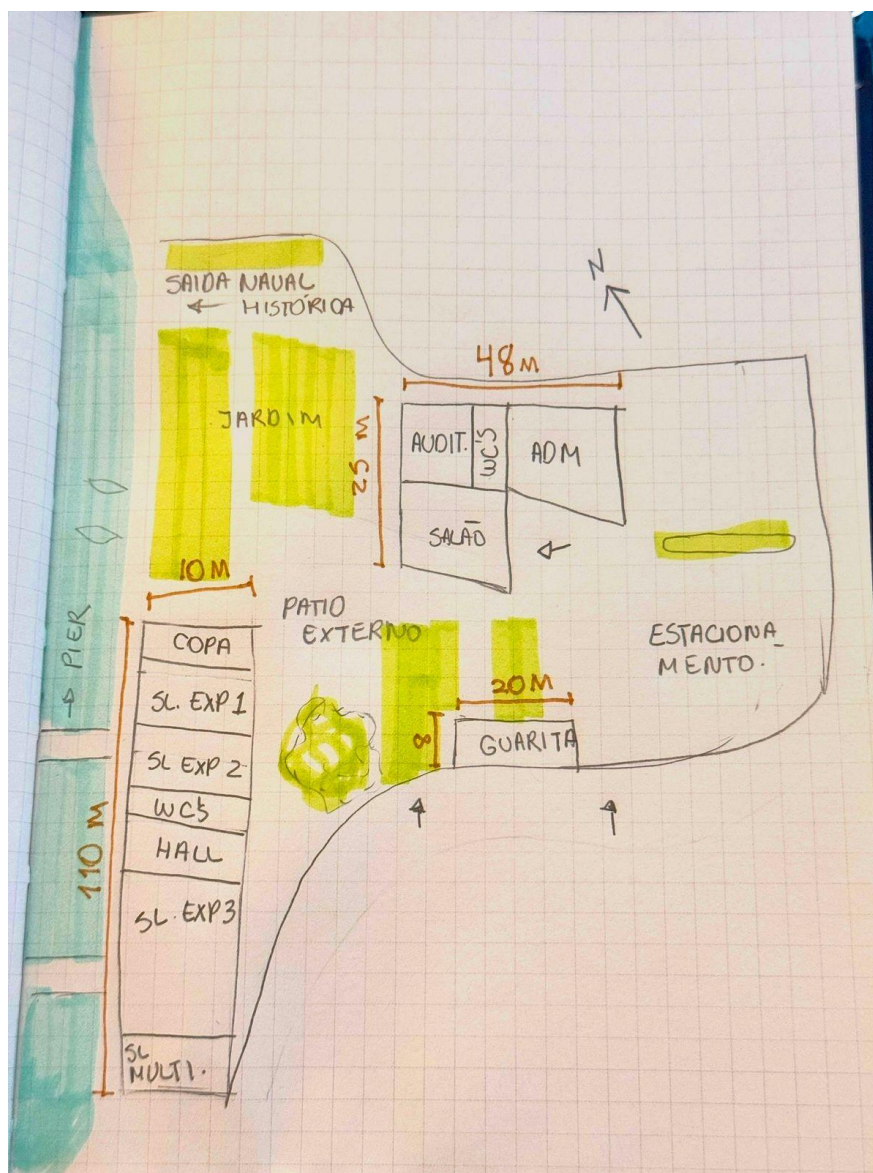 SAIDA NAVAL
← HISTÓRICA
N
48 M
JARDIM
25 M
AUDIT.
WC'S
ADM
SALÃO
10 M
PATIO
EXTERNO
ESTACIONA_
MENTO.
→ PIER
COPA
SL. EXP 1
SL EXP 2
WC'S
HALL
SL. EXP 3
SL
MULTI.
110 M
20 M
8
GUARITA